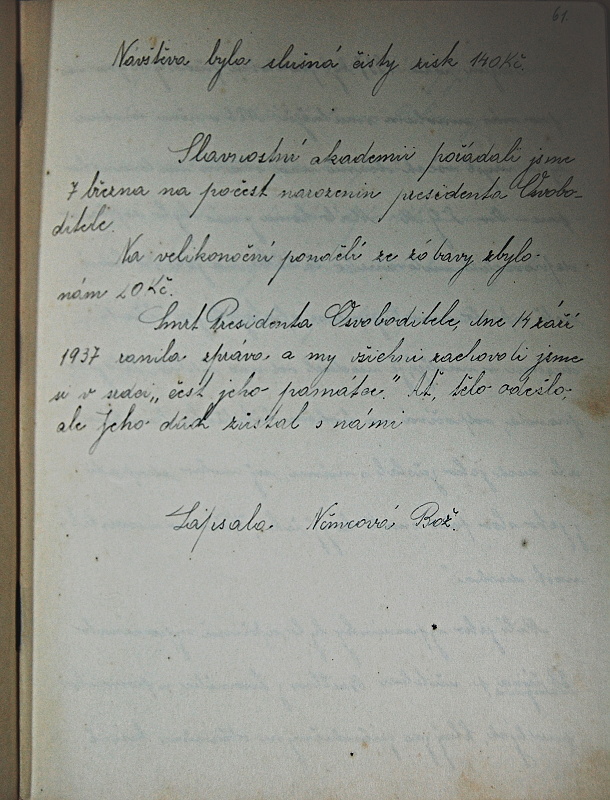 61.
Návštěva byla slušná čistý zisk 140 Kč.
Slavnostní akademii pořádali jsme
7 března na počest narozenin presidenta Osvobo-
ditele.
Na velikonoční pondělí ze zábavy zbylo
nám 20 Kč.
Smrt Presidenta Osvoboditele, dne 14 září
1937 ranila zpráva a my všichni zachovali jsme
si v srdci „čest jeho památce." Ať, tělo odešlo,
ale Jeho duch zůstal s námi
Zapsala Němcová Bož.